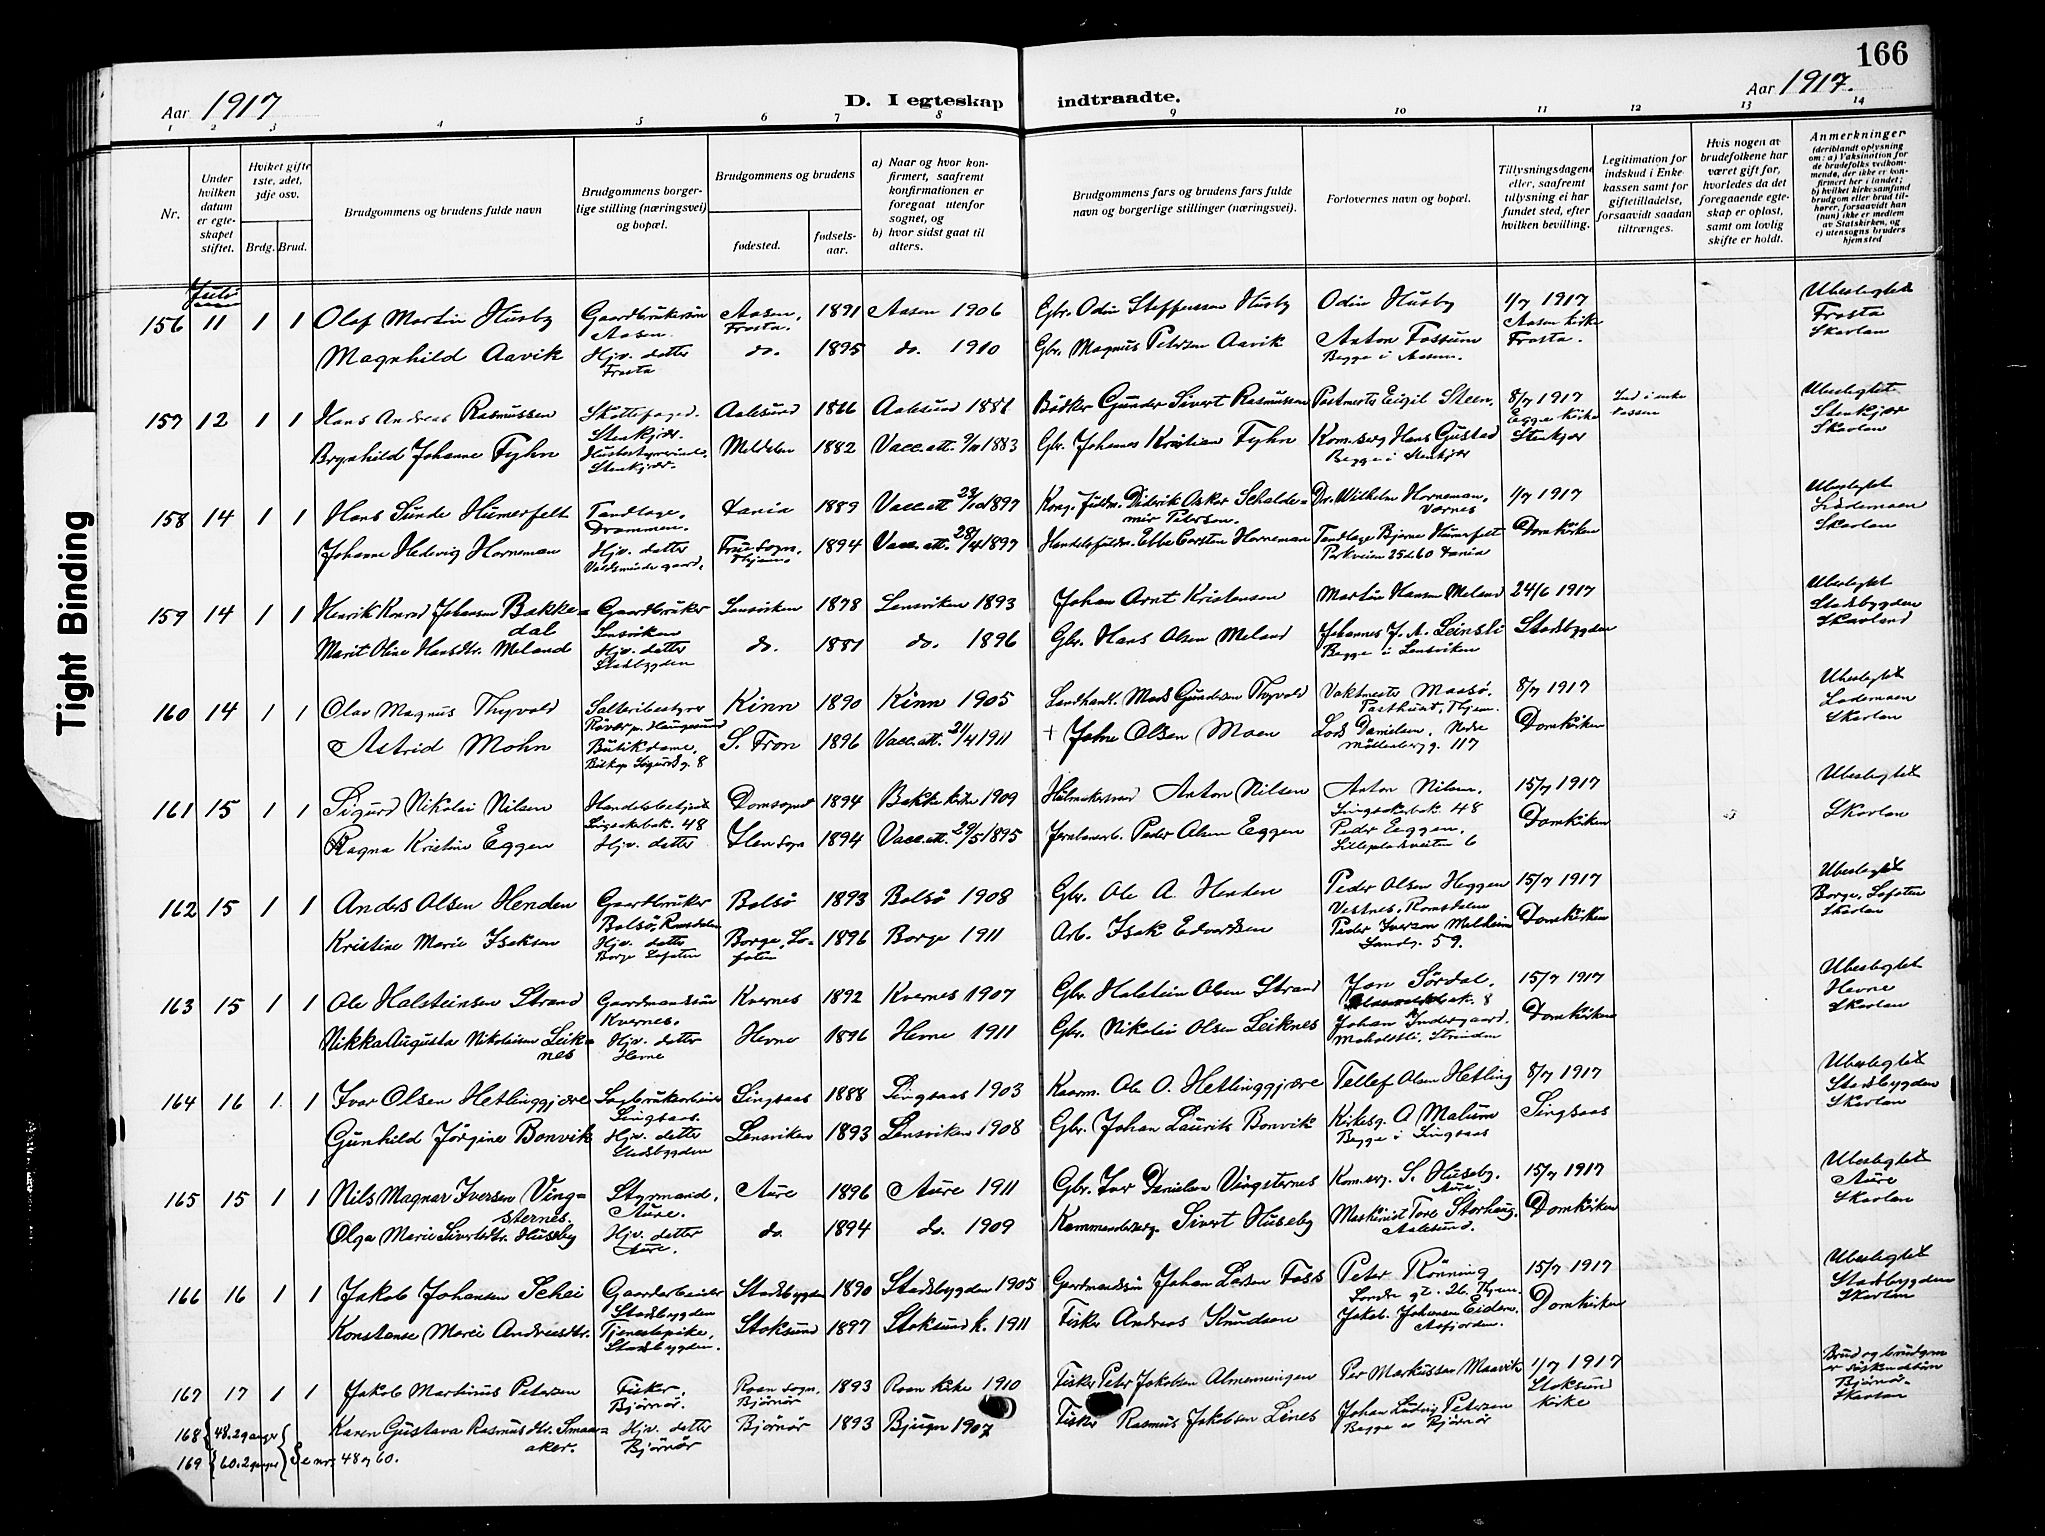 166
Aar 1917
D. I egteskap indtraadte.
Aar 1917.
1 2 3 4 5 6 7 8 9 10 11 12 13 14
Nr.
Under hvilken datum er egteskapet stiftet.
Hvilket gifte 1ste, 2det, 3dje osv.
Brdg. Brud.
Brudgommens og brudens fulde navn
Brudgommens borgerlige stilling (næringsvei) og bopæl.
Brudgommens og brudens
fødested.
fødselsaar.
a) Naar og hvor konfirmert, saafremt konfirmationen er foregaat utenfor sognet, og
b) hvor sidst gaat til alters.
Brudgommens fars og brudens fars fulde navn og borgerlige stillinger (næringsvei).
Forlovernes navn og bopæl.
Tillysningsdagene eller, saafremt tillysning ei har fundet sted, efter hvilken bevilling.
Legitimation for indskud i Enkekassen samt for giftetilladelse, forsaavidt saadan tiltrænges.
Hvis nogen av brudefolkene har været gift for, hvorledes da det foregaaende egteskap er opløst, samt om lovlig skifte er holdt.
Anmerkninger
(deriblandt oplysning om: a) Vaksination for de brudefolks vedkommende, der ikke er konfirmert her i landet; b) hvilket kirkesamfund brudgom eller brud tilhører, forsaavidt han (hun) ikke er medlem av Statskirken, og c) utensogns bruders hjemsted
Juli
156 11 1 1 Olaf Martin Husby Gaardbrukersøn Aasen. Aasen, Frosta. 1891 Aasen 1906 Gbr. Odin Steffensen Husby Odin Husby 1/7 1917 Aasen kirke Ubeslegtet Frosta
Magnhild Aavik Hjv. datter Frosta do. 1895 do. 1910 Gbr. Magnus Petersen Aavik Anton Fossum Begge i Aasen. Frosta. Skavlan
157 12 1 1 Hans Andreas Rasmussen Skattefoged. Stenkjær. Aalesund 1866 Aalesund 1881 Bödker Gunder Sivert Rasmussen Postmester Eigil Steen. 8/7 1917 Egge kirke Ind i enkekassen Ubeslegtet Stenkjær
Brynhild Johanne Fyhn Husbestyrerinde. Stenkjær. Meldalen 1882 Vacc.att. 9/11 1883 Gbr. Johannes Kristian Fyhn Kom.serg Hans Gustad Begge i Stenkjær Stenkjær Skavlan
158 14 1 1 Hans Sunde Humerfelt Tandlæge. Drammen. 1889 Vacc.att 1897 Didrik Oskar Schaldemir Petersen. Dr. Wilhelm Horneman, Værnes 1/7 1917 Ubeslegtet Lademoen
Johanne Hedevig Horneman Hjv. datter Frue sogn, Thjem. 1894 Vacc. att. 28/4 1897 Ebbe Carsten Horneman Tandlæge Bjarne Humerfelt Domkirken Skavlan
159 14 1 1 Henrik Konrad Johansen Bakkedal Gaardbruker Lensviken Lensviken 1878 Lensviken 1893 Johan Arnt Kristensen Martin Hansen Meland 24/6 1917 Ubeslegtet Stadsbygden
Marit Oline Hansdtr. Meland Hjv. datter Stadsbygden do. 1881 do. 1896 Gbr. Hans Olsen Meland Johannes J. A. Leinsli Begge i Lensviken Stadsbygden Skavland
160 14 1 1 Olav Magnus Thyvold Salteribestyrer Røvær pr. Haugesund Kinn 1890 Kinn 1905 Landhandl. Mads Gundersen Thyvold Vaktmester Maasö, Posthuset, Thjem. 8/7 1917 Ubeslegtet Lademoen
Astrid Mohn Butikdame, Biskop Sigurds g. 8 S. Fron 1896 Vacc.att. 21/4 1911 + Johne Olsen Moen Lars Danielsen, Nedre Möllenberg g. 117 Domkirken Skavlan
161 15 1 1 Sigurd Nikolai Nilsen Handelsbetjent Singsakerbak. 48 Domsognet 1894 Bakke kirke 1909 Anton Nilsen Anton Nilsen. Singsakerbak 48 15/7 1917 Ubeslegtet
Ragna Kristine Eggen Hjv. datter Ilen sogn 1894 Vacc.att. 29/5 1895 Jernbanearb. Peder Olsen Eggen Peder Eggen. Lillepladsveiten 6 Domkirken Skavlan
162 15 1 1 Anders Olsen Henden Gaardbruker Bolsö, Romsdalen Bolsö 1893 Bolsö 1908 Gbr. Ole A. Henden Peder Olsen Heggen Vestnes, Romsdalen 15/7 1917 Ubeslegtet Borge, Lofoten
Kristine Marie Isaksen Hjv. datter Borge Lofoten Borge, Lofoten 1896 Borge 1911 Arb. Isak Edvardsen Peder Iversen Melheim Sandg. 59. Domkirken Skavlan
163 15 1 1 Ole Halsteinsen Strand Gaardmandssön Kvernes. Kvernes 1892 Kvernes 1907 Gbr. Halstein Olsen Strand Jon Sördal. 8 15/7 1917 Ubeslegtet Hevne
Nikka Augusta Nikolaisen Leiknes Hjv. datter Hevne Hevne 1896 Hevne 1911 Gbr. Nikolai Olsen Leiknes Johan Indergaard. Moholdtsli, Strinden Domkirken Skavlan
164 16 1. 1 Ivar Olsen Hetlinggjære Sagbrukarbeider Singsaas. Singsaas 1888 Singsaas 1903 Kaarm. Ole O. Hetlinggjære Tellef Olsen Hetling 8/7 1917 Ubeslegtet Stadsbygden
Gunhild Jörgine Bonvik Hjv. datter Stadsbygden Lensviken 1893 Lensviken 1908 Gbr. Johan Laurits Bonvik Kirkesg. O Malum Begge i Singsaas Singsaas Skavlan
165 15 1 1 Nils Magnar Iversen Vingsternes. Styrmand, Aure. Aure 1896 Aure 1911 Gbr. Ivar Danielsen Vingsternes Kom.serg. S. Huseby. Aure. 15/7 1917 Ubeslegtet Aure
Olga Marie Sivertsdtr. Huseby Hjv. datter Aure. do. 1894 do. 1909 Kommandersg. Sivert Huseby Maskinist Tore Storhaug. Aalesund. Domkirken Skavlan
166 16 1 1 Jakob Johansen Schei Gaardarbeider Stadsbygden Stadsbygden 1890 Stadsbygden 1905 Gaardmandssön Johan Larsen Foss Peter Rönning Söndre gt. 26. Thjem. 15/7 1917 Ubeslegtet Stadsbygden
Konstanse Marie Andreasdtr. Tjenestepike, Stadsbygden. Stoksund 1897 Stoksund k. 1911 Fisker Andreas Knudsen Jakob Johansen Eiden. Aafjorden. Domkirken Skavlan
167 17 1 1 Jakob Martinus Petersen Fisker, Bjørnør. Roan sogn. Bjørnør 1893 Roan kirke 1910 Fisker Peter Jakobsen Almenningen Per Markussen Maavik 1/7 1917 Stoksund kirke Brud og brudgom er söskendebörn Bjørnør.
168 {48.2 gange} Karen Gustava Rasmusdtr. Smaaaker. Hjv. datter Bjørnør Bjørnør 1893 Bjugn 1907 Fisker Rasmus Jakobsen Lines Johan Ludvig Petersen Begge av Bjørnør Skavlan
169 {60.2 gange} Se nr. 48 og 60.
Tight Binding